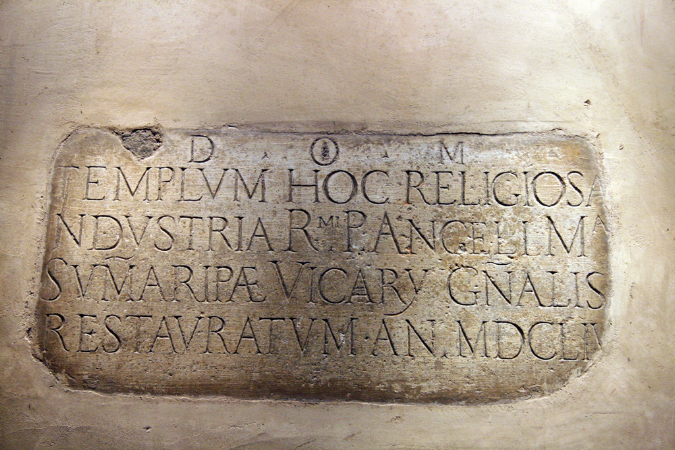 D O M
TEMPLVM HOC RELIGIOSA
NDVSTRIA R.MI P. ANGELI M A
SVM̃ARIPÆ VICARY GÑALIS
RESTAVRATVM · AN. MDCLIV